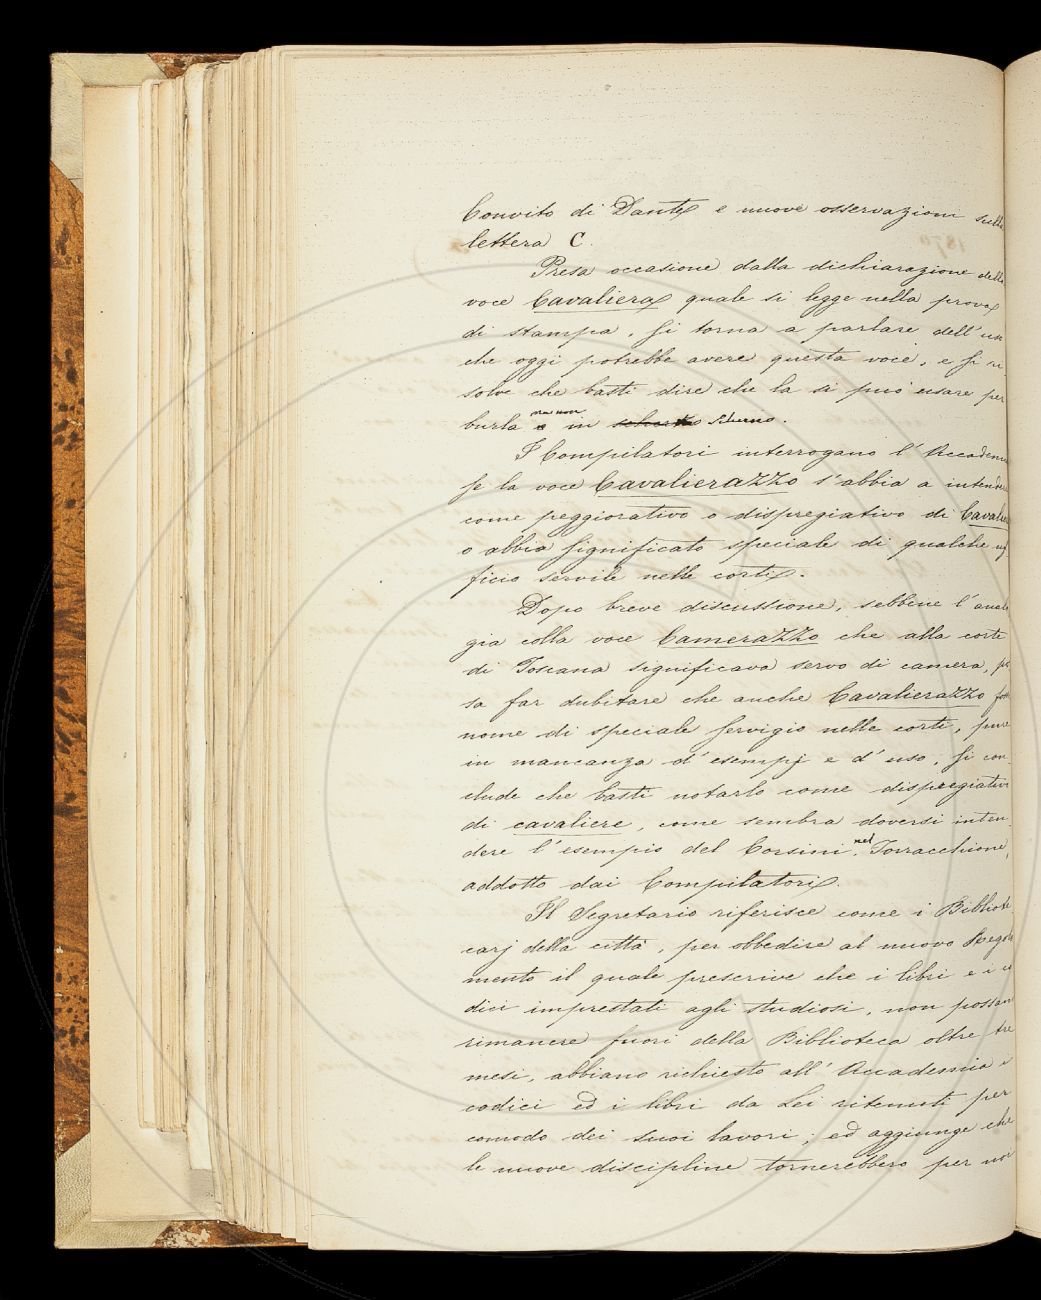 Convito di Dante e nuove osservazioni sulla
lettera C.
Presa occasione dalla dichiarazione della
voce Cavaliera quale si legge nella prova
di stampa, si torna a parlare dell'uso
che oggi potrebbe avere questa voce, e si ri-
solve che basti dire che la si può usare per
burla ma non in scherno.
I Compilatori interrogano l'Accademia
se la voce Cavalierazzo s'abbia a intendere
come peggiorativo o dispregiativo di Cavalie
o abbia significato speciale di qualche uf
ficio servile nelle corti.
Dopo breve discussione, sebbene l'analo
gia colla voce Camerazzo che alla corte
di Toscana significava servo di camera, pos
sa far dubitare che anche Cavalierazzo fosse
nome di speciale servigio nelle corti, pure
in mancanza d'esempj e d'uso, si con-
clude che basti notarlo come dispregiativo
di cavaliere, come sembra doversi inten-
dere l'esempio del Corsini, nel Torracchione,
addotto dai Compilatori.
Il Segretario riferisce come i Bibliote-
carj della città, per obbedire al nuovo Regola
mento il quale prescrive che i libri e i co
dici imprestati agli studiosi, non possano
rimanere fuori della Biblioteca oltre tre
mesi, abbiano richiesto all'Accademia i
codici ed i libri da Lei ritenuti per
comodo dei suoi lavori; ed aggiunge che
le nuove discipline tornerebbero per noi